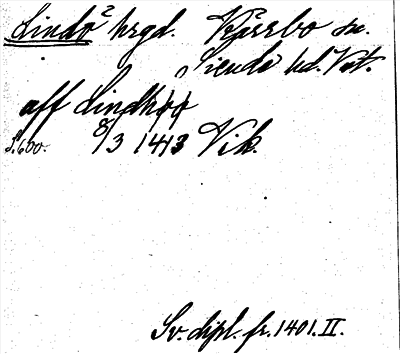 Lindö² hrgd. Kärrbo sn.
Siende hd. Vst.
aff Lindhöö
S. 600. 8/3 1413 Vik.
Sv. dipl. fr. 1401. II.